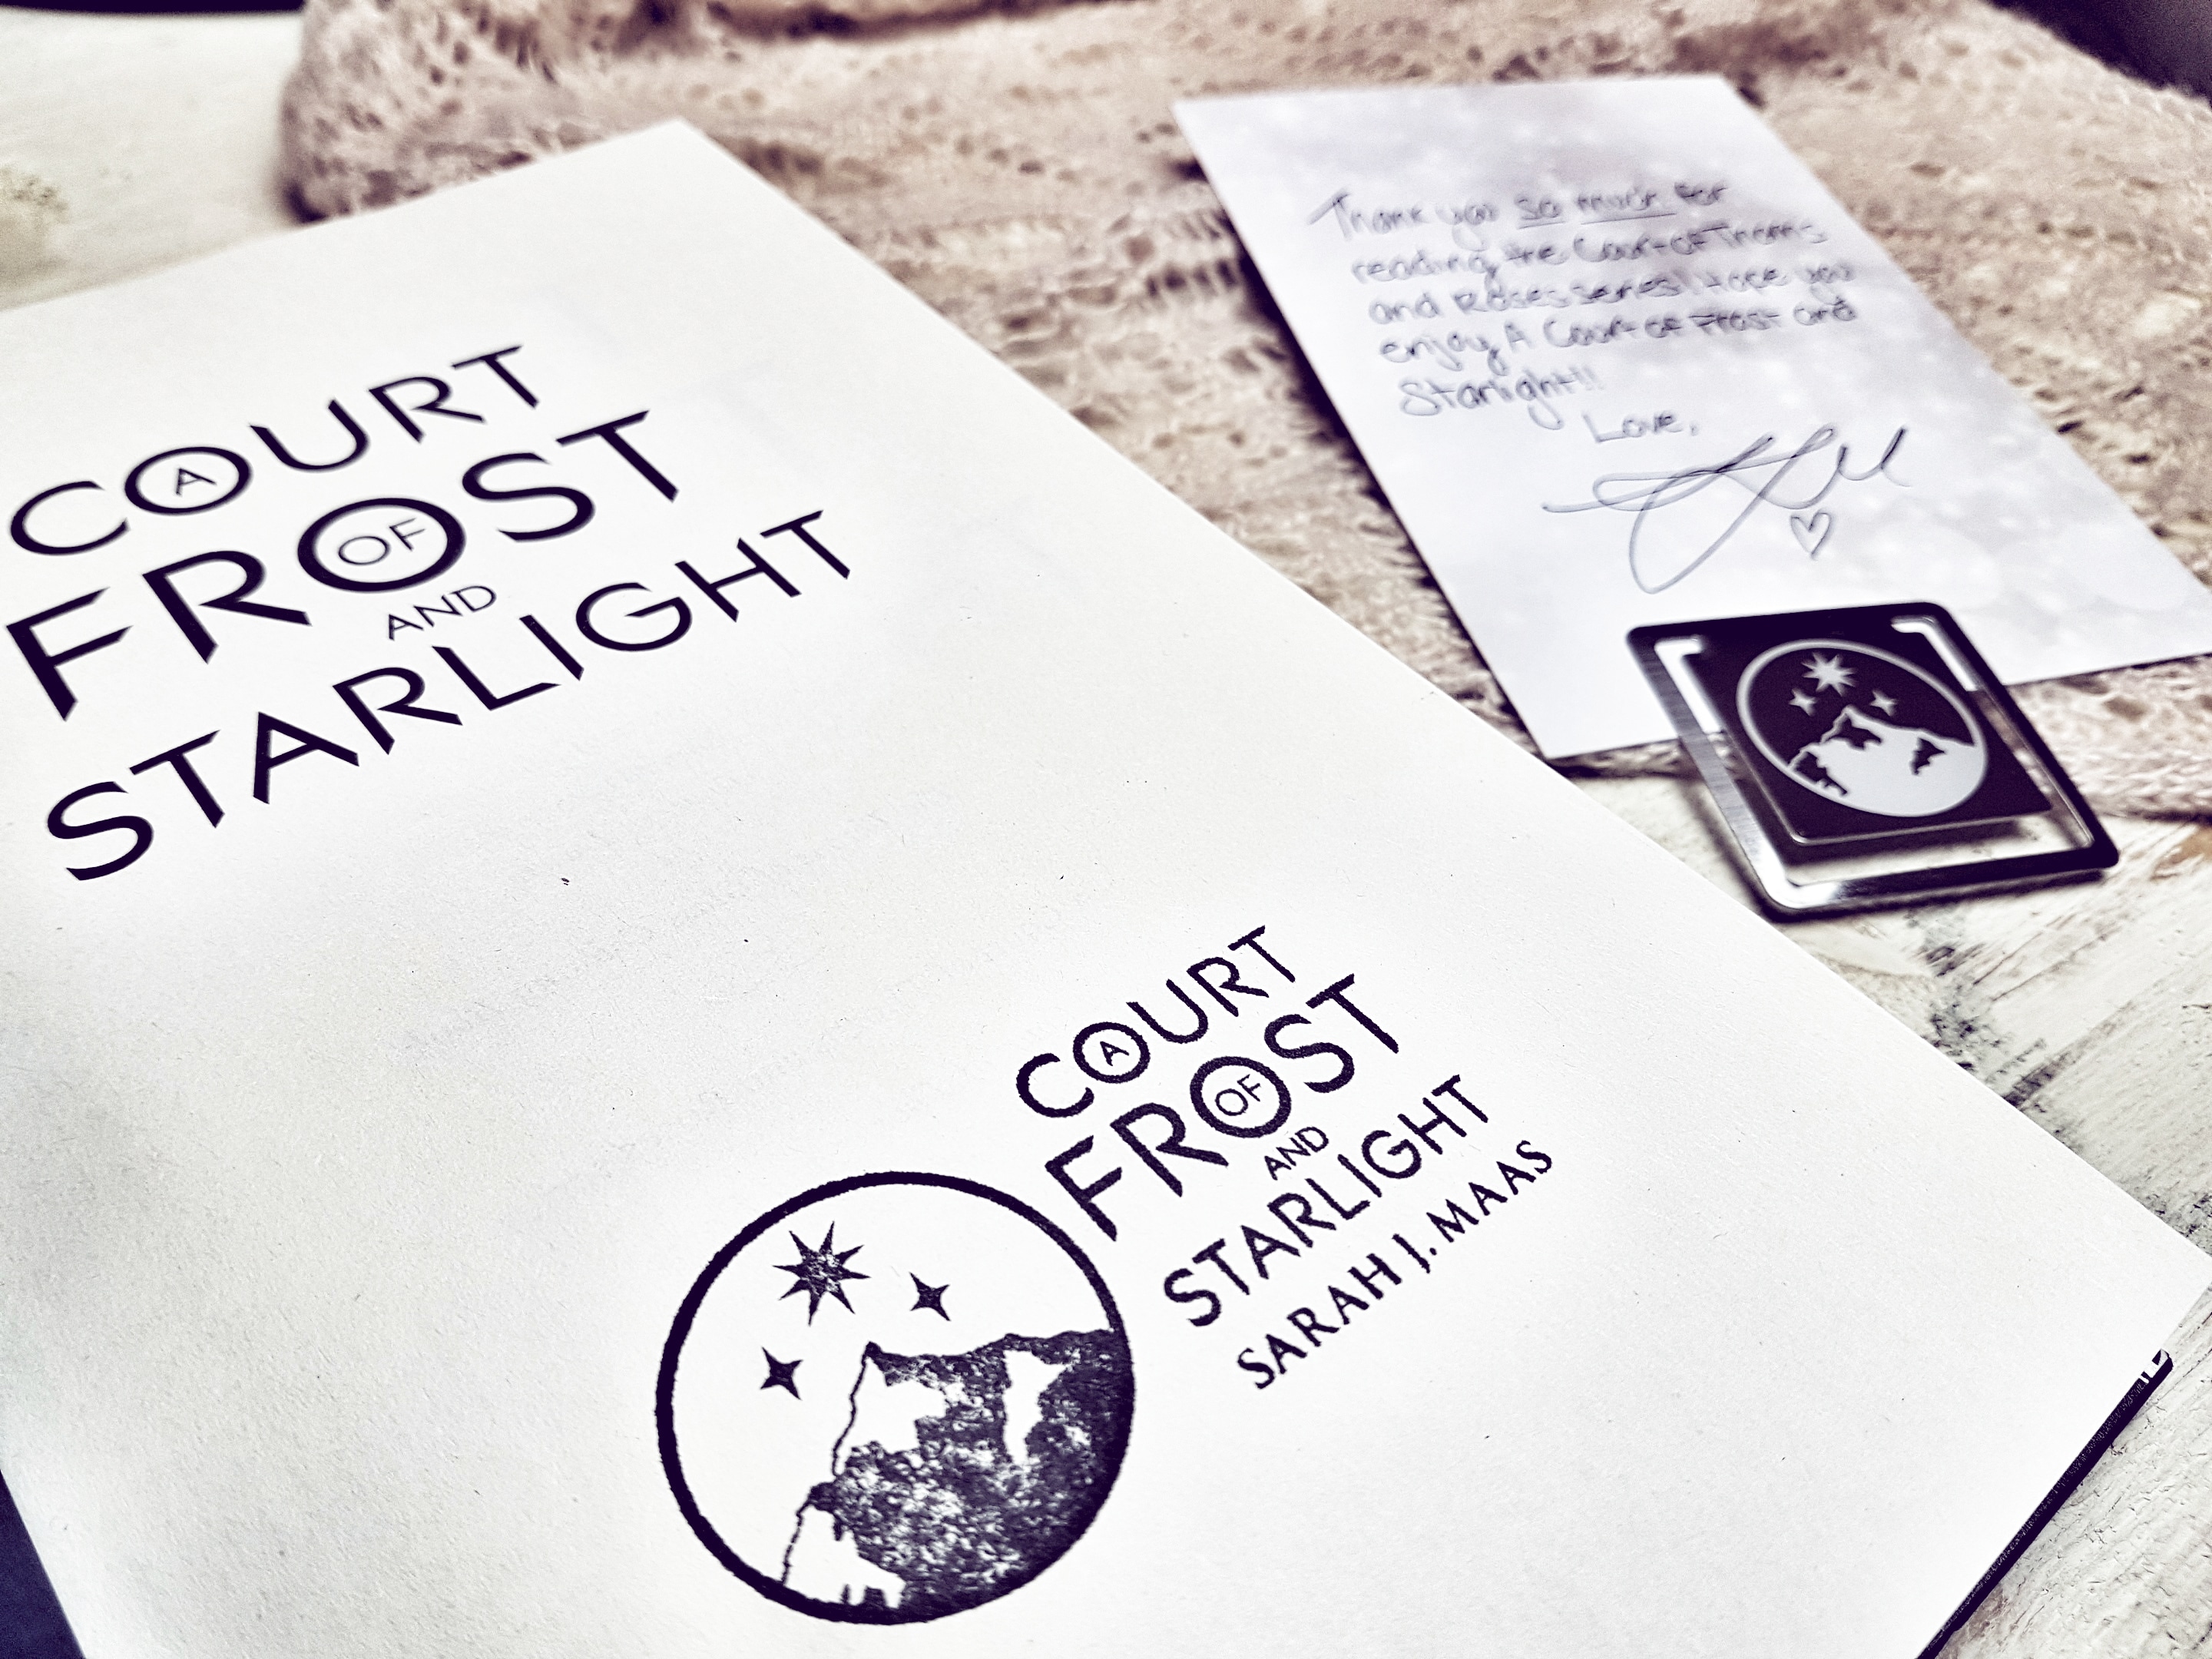 A COURT
OF FROST
AND
STARLIGHT
Thank you so much for
reading the Court of Thorns
and Roses series! Hope you
enjoy A Court of Frost and
Starlight!!
Love,
A COURT
OF FROST
AND
STARLIGHT
SARAH J. MAAS